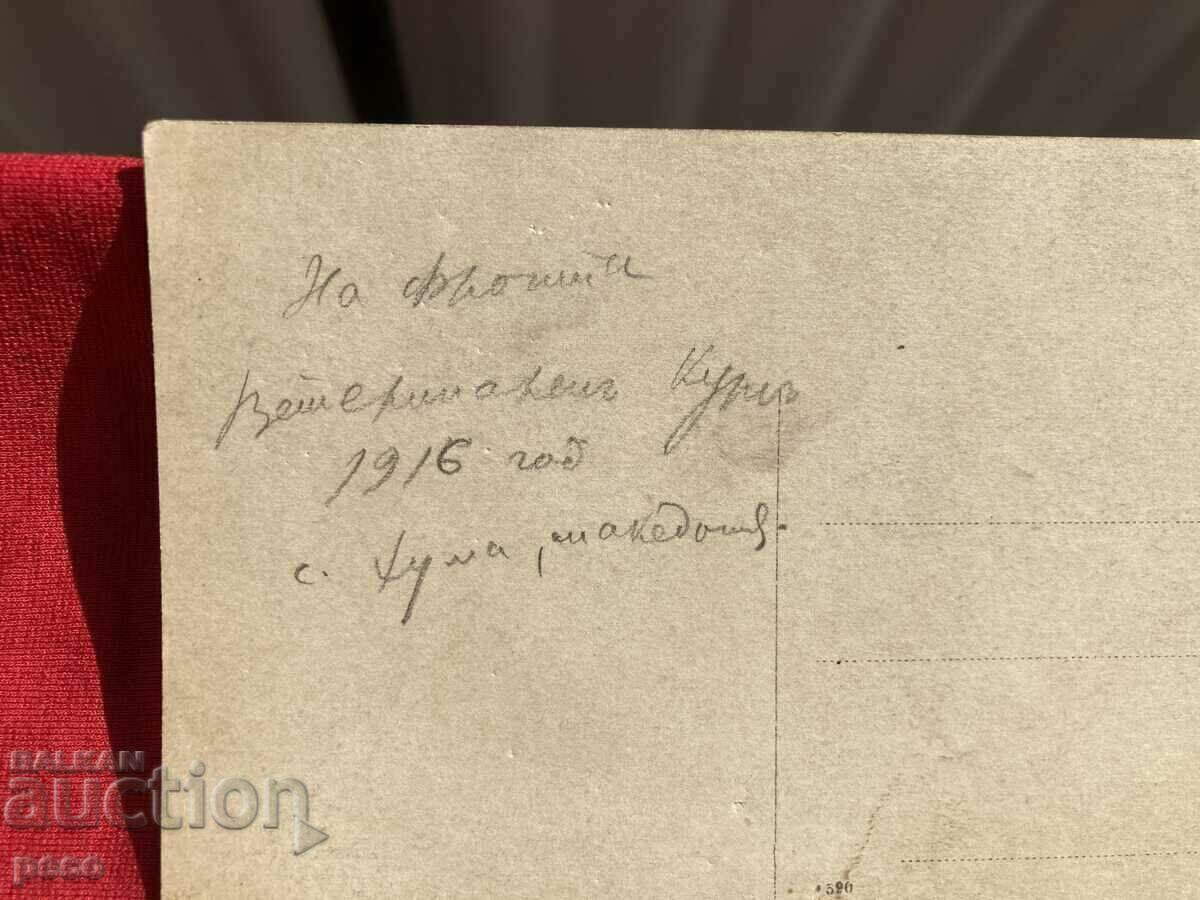 На фронта
Ветеринаренъ Курсъ
1916 год
с. Хума, Македония.
590
BALKAN
auction
peco